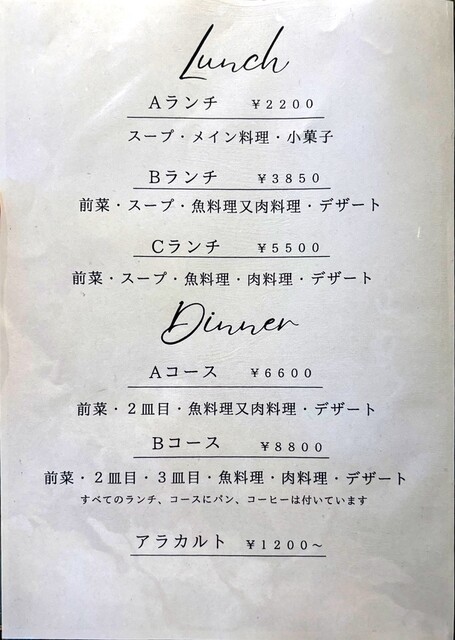 Lunch
Aランチ ¥2200
スープ・メイン料理・小菓子
Bランチ ¥3850
前菜・スープ・魚料理又肉料理・デザート
Cランチ ¥5500
前菜・スープ・魚料理・肉料理・デザート
Dinner
Aコース ¥6600
前菜・2皿目・魚料理又肉料理・デザート
Bコース ¥8800
前菜・2皿目・3皿目・魚料理・肉料理・デザート
すべてのランチ、コースにパン、コーヒーは付いています
アラカルト ¥1200～